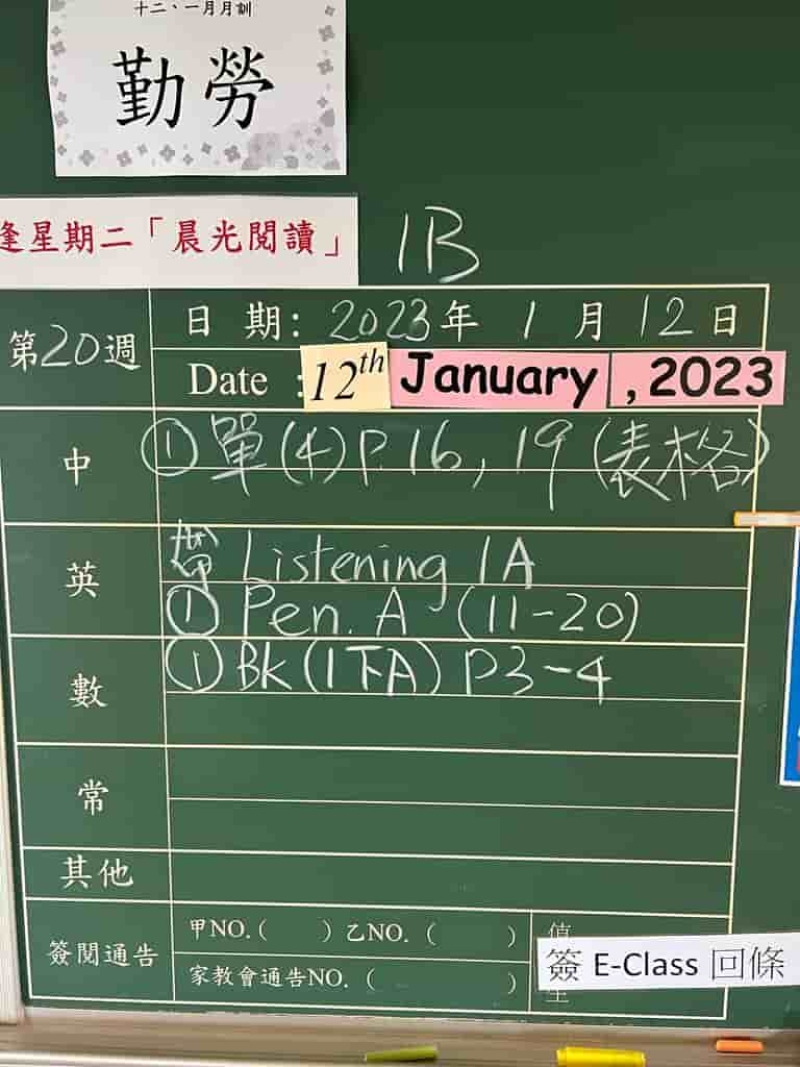 十二、一月月訓
勤勞
逢星期二「晨光閱讀」
1B
第20週
日 期: 2023年 1 月 12 日
Date : 12th January , 2023
中
① 單(4) P.16, 19 (表格)
英
帶 Listening 1A
① Pen. A (11-20)
數
① BK (1下A) P3-4
常
其他
簽閱通告
甲NO.( ) 乙NO. ( )
家教會通告NO. ( )
值
生
簽 E-Class 回條